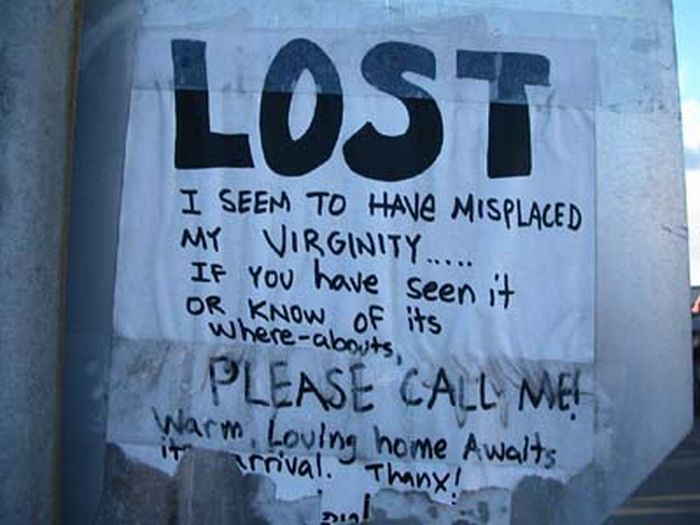 LOST
I SEEM TO HAVe MISPLACED
MY VIRGINITY.....
IF YOU have seen it
OR KNOW OF its
where-abouts,
PLEASE CALL ME!
Warm, Loving home Awaits
its arrival. Thanx!